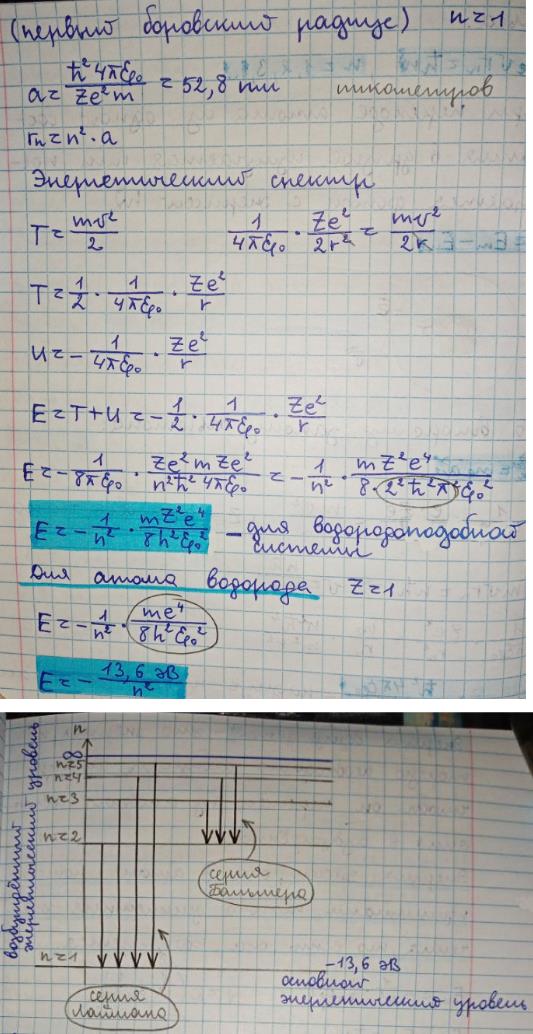 (первый боровский радиус) n = 1
a = ħ²4πε₀ / Ze²m = 52,8 пм пикометров
rₙ = n² · a
Энергетический спектр
T = mv²/2 1/4πε₀ · Ze²/2r² = mv²/2r
T = 1/2 · 1/4πε₀ · Ze²/r
U = - 1/4πε₀ · Ze²/r
E = T + U = - 1/2 · 1/4πε₀ · Ze²/r
E = - 1/8πε₀ · Ze²mZe² / n²ħ²4πε₀ = - 1/n² · mZ²e⁴ / 8·2²ħ²π²ε₀²
E = - 1/n² · mZ²e⁴ / 8h²ε₀² – для водородоподобной
системы
Для атома водорода Z = 1
E = - 1/n² · me⁴ / 8h²ε₀²
E = - 13,6 эВ / n²
возбуждённый
энергетический уровень
n
∞
n=5
n=4
n=3
n=2
серия
Бальмера
n=1
-13,6 эВ
основной
энергетический уровень
серия
Лаймана